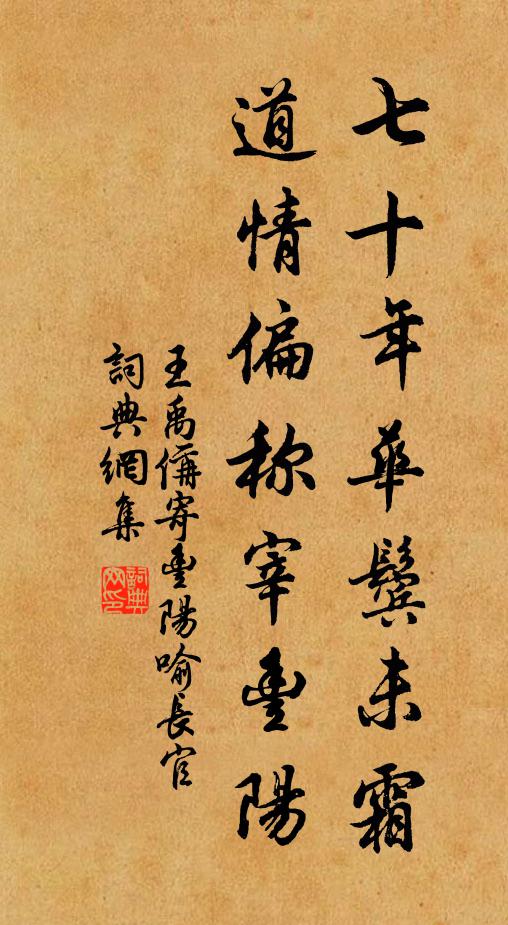 七十年華鬢未霜
道情偏称宰豊陽
王禹偁寄豊陽喻長官
詞典網集
詞典网印